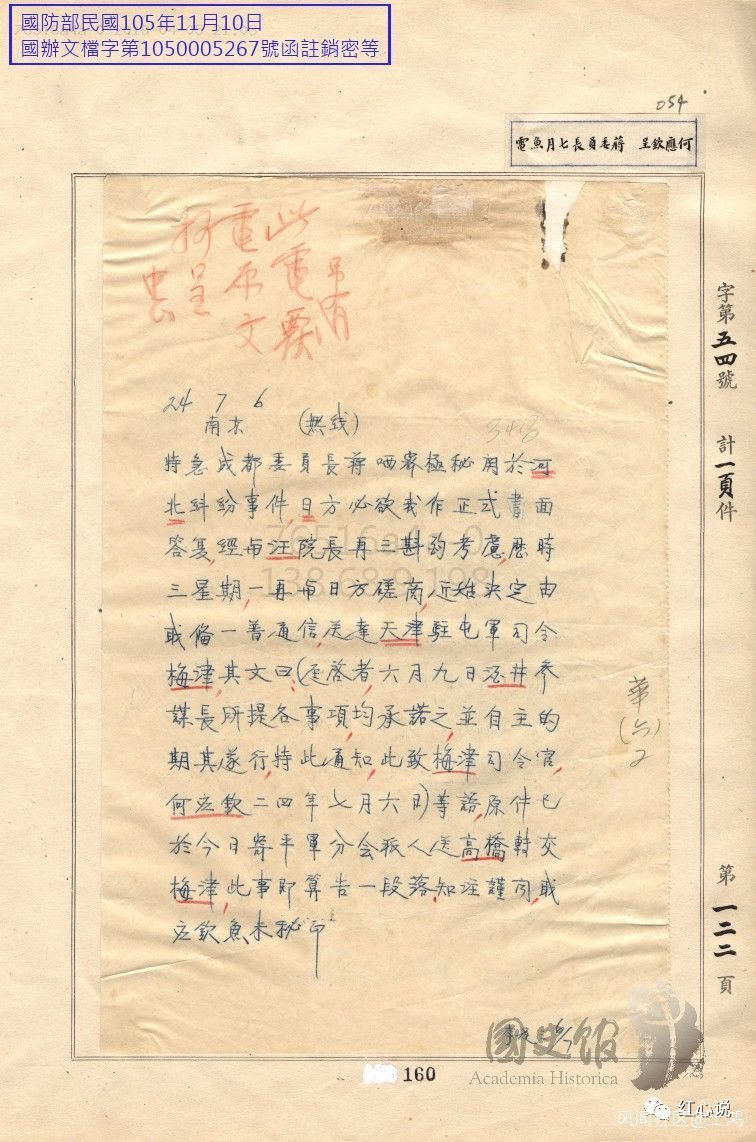 國防部民國105年11月10日
國辦文檔字第1050005267號函註銷密等
054
何應欽呈 蔣委員長七月魚電
此電
電原文
抄呈
24 7 6
南京 (無线)
348
特急成都委員長蔣哂密極秘関於河
北糾紛事件,日方必欲我作正式書面
答复,經与汪院長再三斟酌考慮,歷時
三星期,一再与日方磋商,近始決定由
职備一普通信,送達天津駐屯軍司令
梅津,其文曰:(逕啓者,六月九日酒井參
謀長所提各事項,均承諾之,並自主的
期其遂行,特此通知,此致梅津司令官,
何应欽二四年七月六日)等語,原件已
於今日寄平軍分会派人送高橋轉交
梅津,此事即算告一段落,知注謹聞,职
应欽魚未秘印
字第五四號 計一頁件
第一二二頁
160
國史館
Academia Historica
红心说
风闻社区@王鸿